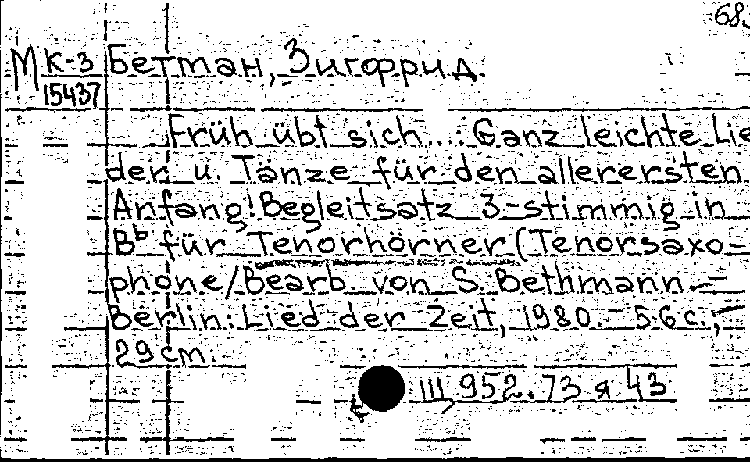 68.
М К-3 Бетман, Зигфрид.
15437
Früh übt sich... Ganz leichte Lie
der u. Tänze für den allerersten
Anfang! Begleitsatz 3-stimmig in
Bb für Tenorhörner (Tenorsaxo-
phone/Bearb von S. Bethmann.—
Berlin: Lied der Zeit, 1980.— 56 с.;
29 cm.
III, 952.73 я 43